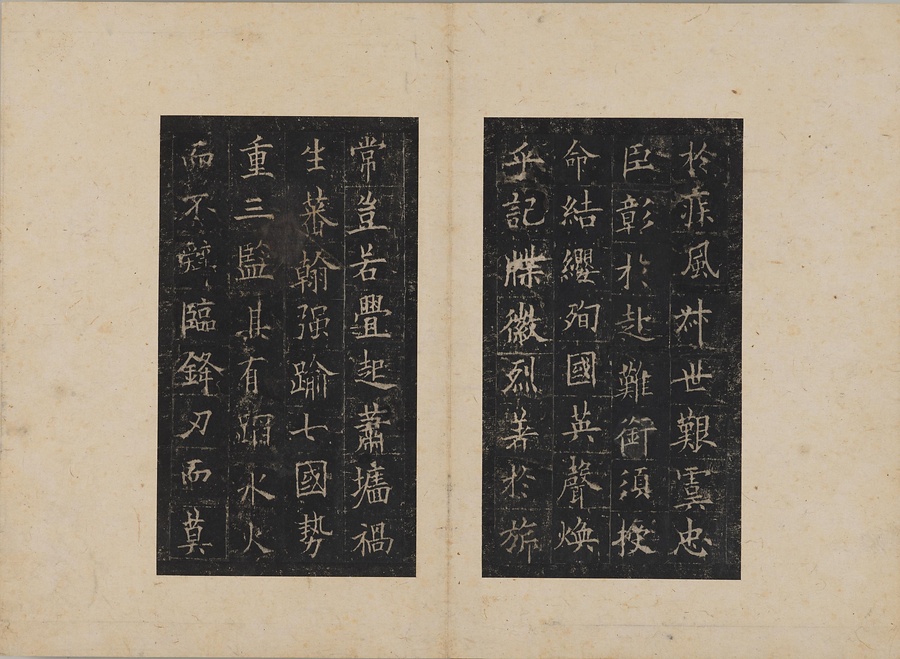 於疾風叶世艱虞忠
臣彰於赴難銜須授
命結纓殉國英聲煥
乎記牒徽烈著於旂
常豈若舋起蕭墻禍
生蕃翰强踰七國勢
重三監其有蹈水火
而不辭臨鋒刃而莫